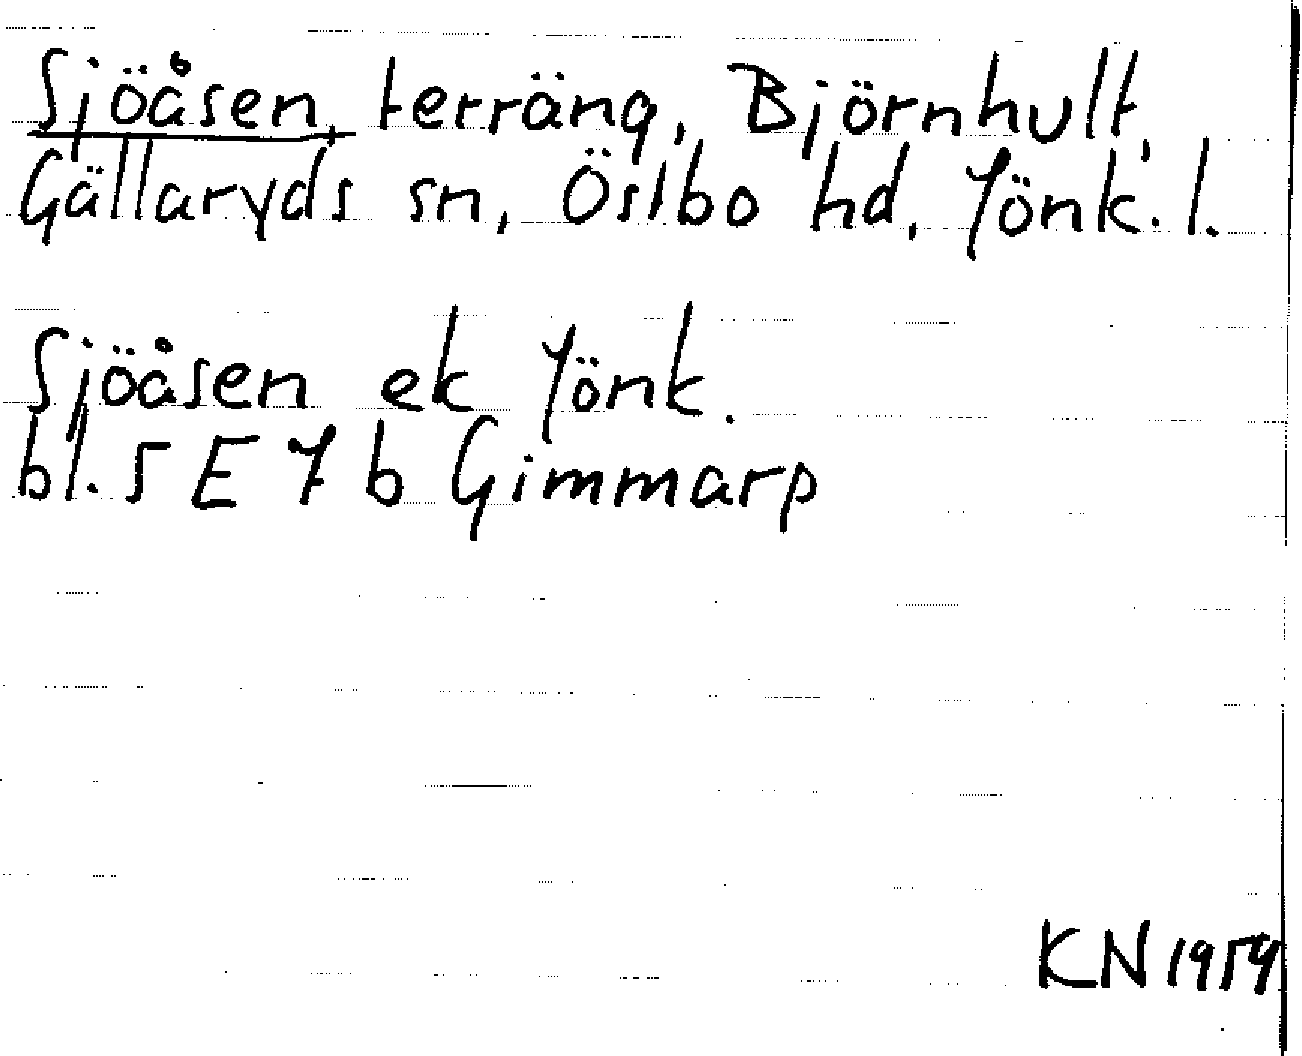 Sjöåsen, terräng, Björnhult,
Gällaryds sn, Östbo hd, Jönk. l.
Sjöåsen ek Jönk.
bl. 5 E 7 b Gimmarp
KN 1959